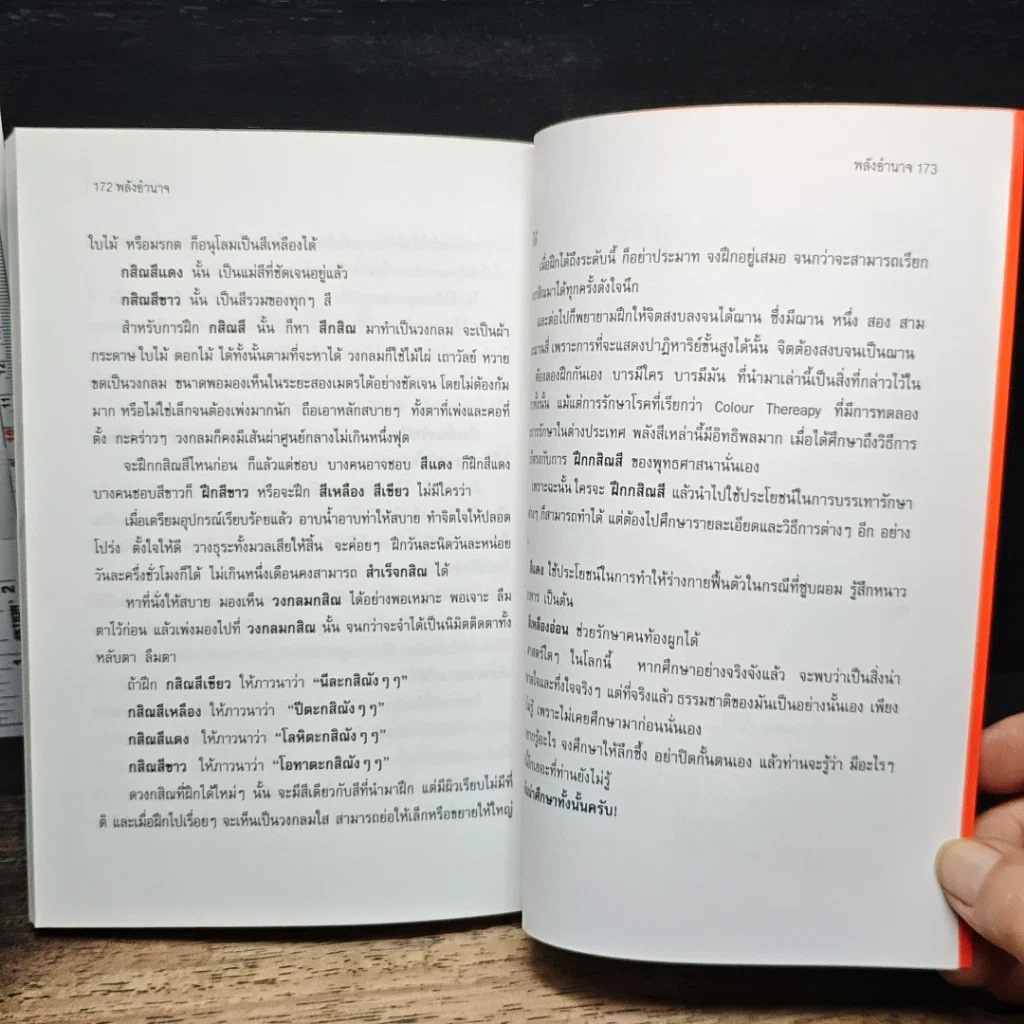 172 พลังอำนาจ
ใบไม้ หรือมรกต ก็อนุโลมเป็นสีเหลืองได้
กสิณสีแดง นั้น เป็นแม่สีที่ชัดเจนอยู่แล้ว
กสิณสีขาว นั้น เป็นสีรวมของทุกๆ สี
สำหรับการฝึก กสิณสี นั้น ก็หา สีกสิณ มาทำเป็นวงกลม จะเป็นผ้า
กระดาษ ใบไม้ ดอกไม้ ได้ทั้งนั้นตามที่จะหาได้ วงกลมก็ใช้ไม้ไผ่ เถาวัลย์ หวาย
ขดเป็นวงกลม ขนาดพอมองเห็นในระยะสองเมตรได้อย่างชัดเจน โดยไม่ต้องก้ม
มาก หรือไม่ใช่เล็กจนต้องเพ่งมากนัก ถือเอาหลักสบายๆ ทั้งตาที่เพ่งและคอที่
ตั้ง กะคร่าวๆ วงกลมก็คงมีเส้นผ่าศูนย์กลางไม่เกินหนึ่งฟุต
จะฝึกกสิณสีไหนก่อน ก็แล้วแต่ชอบ บางคนอาจชอบ สีแดง ก็ฝึกสีแดง
บางคนชอบสีขาวก็ ฝึกสีขาว หรือจะฝึก สีเหลือง สีเขียว ไม่มีใครว่า
เมื่อเตรียมอุปกรณ์เรียบร้อยแล้ว อาบน้ำอาบท่าให้สบาย ทำจิตใจให้ปลอด
โปร่ง ตั้งใจให้ดี วางธุระทั้งมวลเสียให้สิ้น จะค่อยๆ ฝึกวันละนิดวันละหน่อย
วันละครึ่งชั่วโมงก็ได้ ไม่เกินหนึ่งเดือนคงสามารถ สำเร็จกสิณ ได้
หาที่นั่งให้สบาย มองเห็น วงกลมกสิณ ได้อย่างพอเหมาะ พอเจาะ ลืม
ตาไว้ก่อน แล้วเพ่งมองไปที่ วงกลมกสิณ นั้น จนกว่าจะจำได้เป็นนิมิตติดตาทั้ง
หลับตา ลืมตา
ถ้าฝึก กสิณสีเขียว ให้ภาวนาว่า “นีละกสิณังๆๆ”
กสิณสีเหลือง ให้ภาวนาว่า “ปีตะกสิณังๆๆ”
กสิณสีแดง ให้ภาวนาว่า “โลหิตะกสิณังๆๆ”
กสิณสีขาว ให้ภาวนาว่า “โอทาตะกสิณังๆๆ”
ดวงกสิณที่ฝึกได้ใหม่ๆ นั้น จะมีสีเดียวกับสีที่นำมาฝึก แต่มีผิวเรียบไม่มีที่
ติ และเมื่อฝึกไปเรื่อยๆ จะเห็นเป็นวงกลมใส สามารถย่อให้เล็กหรือขยายให้ใหญ่
พลังอำนาจ 173
ได้
เมื่อฝึกได้ถึงระดับนี้ ก็อย่าประมาท จงฝึกอยู่เสมอ จนกว่าจะสามารถเรียก
มาได้ทุกครั้งดังใจนึก
และต่อไปก็พยายามฝึกให้จิตสงบลงจนได้ฌาน ซึ่งมีฌาน หนึ่ง สอง สาม
เพราะการที่จะแสดงปาฏิหาริย์ขั้นสูงได้นั้น จิตต้องสงบจนเป็นฌาน
ต้องลองฝึกกันเอง บารมีใคร บารมีมัน ที่นำมาเล่านี้เป็นสิ่งที่กล่าวไว้ใน
ทั้งนั้น แม้แต่การรักษาโรคที่เรียกว่า Colour Thereapy ที่มีการทดลอง
การรักษาในต่างประเทศ พลังสีเหล่านี้มีอิทธิพลมาก เมื่อได้ศึกษาถึงวิธีการ
กับการ ฝึกกสิณสี ของพุทธศาสนานั่นเอง
เพราะฉะนั้น ใครจะ ฝึกกสิณสี แล้วนำไปใช้ประโยชน์ในการบรรเทารักษา
ก็สามารถทำได้ แต่ต้องไปศึกษารายละเอียดและวิธีการต่างๆ อีก อย่าง
สีแดง ใช้ประโยชน์ในการทำให้ร่างกายฟื้นตัวในกรณีที่ซูบผอม รู้สึกหนาว
เป็นต้น
สีเหลืองอ่อน ช่วยรักษาคนท้องผูกได้
ศาสตร์ใดๆ ในโลกนี้ หากศึกษาอย่างจริงจังแล้ว จะพบว่าเป็นสิ่งน่า
และทึ่งใจจริงๆ แต่ที่จริงแล้ว ธรรมชาติของมันเป็นอย่างนั้นเอง เพียง
เพราะไม่เคยศึกษามาก่อนนั่นเอง
รู้อะไร จงศึกษาให้ลึกซึ้ง อย่าปิดกั้นตนเอง แล้วท่านจะรู้ว่า มีอะไรๆ
อีกเยอะที่ท่านยังไม่รู้
น่าศึกษาทั้งนั้นครับ!